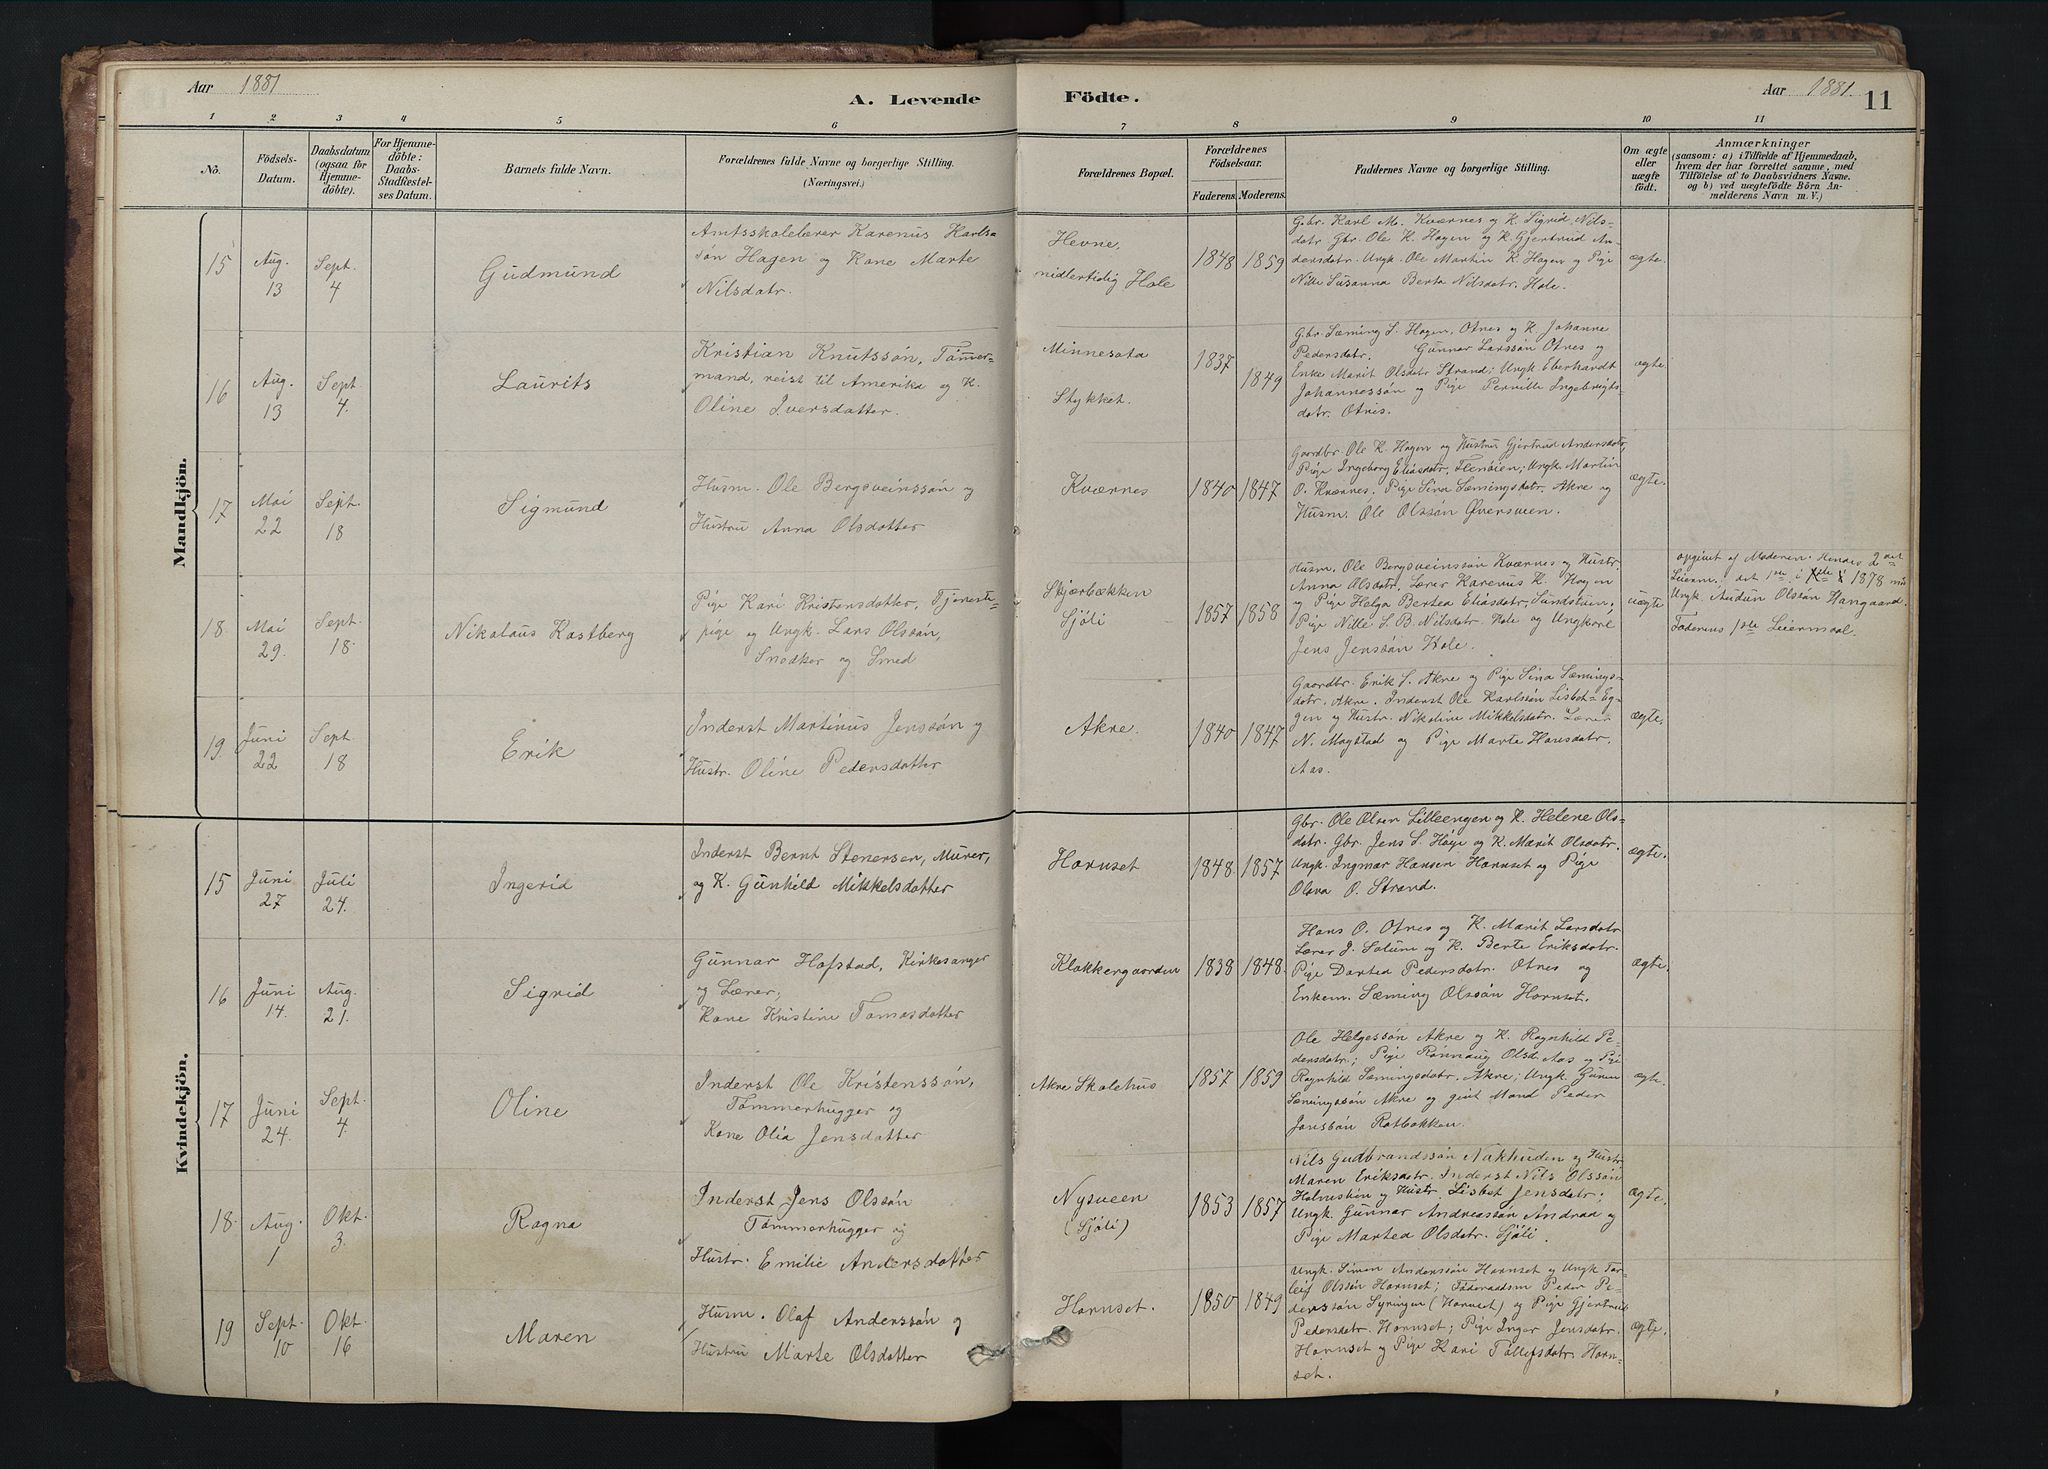 Aar 1881
A. Levende Födte.
Aar 1881. 11
1 2 3 4 5 6 7 8 9 10 11
No.
Födsels-
Datum.
Daabsdatum
(ogsaa for
Hjemme-
döbte).
For Hjemme-
döbte:
Daabs-
Stadfæstel-
ses Datum.
Barnets fulde Navn.
Forældrenes fulde Navne og borgerlige Stilling.
(Næringsvei.)
Forældrenes Bopæl.
Forældrenes
Födselsaar.
Faderens. Moderens.
Faddernes Navne og borgerlige Stilling.
Om ægte
eller
uægte
födt.
Anmærkninger
(saasom: a) i Tilfælde af Hjemmedaab,
hvem der har forrettet samme, med
Tilföielse af to Daabsvidners Navne,
og b) ved uægtefödte Börn An-
melderens Navn m. V.)
Mandkjön.
15
Aug.
13
Sept.
4
Gudmund
Amtsskolelærer Karenus Karls-
søn Hagen og Kone Marte
Nilsdatr.
Hevne,
midlertidig Hole
1848 1859
Gbr. Karl M. Kværnes og K. Sigrid Nils-
datr. Gbr. Ole K. Hagen og K. Gjertrud An-
dersdatr. Ungk. Ole Martin K. Hagen og Pige
Nille Susanna Berta Nilsdatr. Hole.
ægte.
16
Aug.
13
Sept.
4.
Laurits
Kristian Knutssøn, Tømmer-
mand, reist til Amerika og K.
Oline Iversdatter.
Minnesota
Stykket.
1837
1849
Gbr. Sæming S. Hagen, Otnes og K. Johanne
Pedersdatr. Gunnar Larssøn Otnes og
Enke Marit Olsdatr Strand; Ungk. Eberhardt
Johannessøn og Pige Pernille Ingebrigts-
datr. Otnes.
ægte.
17
Mai
22
Sept.
18
Sigmund
Husm. Ole Bergsveinssøn og
Hustru Anna Olsdatter
Kværnes
1840 1847
Gaardbr Ole K. Hagen og Hustru Gjertrud Andersdatr,
Pige Ingeborg Eliasdatr, Flenøien; Ungk. Martin
O. Kværnes. Pige Sina Sæmingsdatr. Akre og
Husm. Ole Olssøn Øversveen.
ægte.
18.
Mai
29.
Sept.
18.
Nikolaus Kastberg
Pige Kari Kristensdatter, Tjeneste-
pige og Ungk. Lars Olssøn,
Snedker og Smed
Skjærbækken
Sjøli
1857 1858
Husm. Ole Bergsveinssøn Kværnes og Hustr.
Anna Olsdatr, Lærer Karenus K. Hagen
og Pige Helga Bertea Eliasdatr, Sundstuen;
Pige Nille S. B. Nilsdatr. Hole og Ungkarl
Jens Jenssøn Hole.
uægte
opgivet af Moderen. Hendes 2det
Leierm., det 1ste i 1878 m
Ungk. Audun Olssøn Haugaard.
Faderens 1ste Leiermaal.
19.
Juni
22
Sept.
18
Erik
Inderst Martinus Jenssøn og
Hustr. Oline Pedersdatter
Akre.
1840 1847
Gaardbr. Erik S. Akre og Pige Sina Sæmings-
datr. Akre. Inderst Ole Karlssøn Lisbet-Eg-
gen og Hustr. Nikoline Mikkelsdatr. Lærer
N. Magstad og Pige Marte Hansdatr.
Aas.
ægte.
Kvindekjön.
15
Juni
27
Juli
24.
Ingerid
Inderst Bernt Stenersen, Murer,
og K. Gunhild Mikkelsdatter
Hornset
1848. 1857
Gbr. Ole Olsen Lilleengen og K. Helene Ols-
datr. Gbr. Jens S. Høye og K. Marit Olsdatr.
Ungk. Ingmar Hansen Hornset og Pige
Olava O. Strand.
ægte.
16
Juni
14.
Aug.
21.
Sigrid
Gunnar Hofstad, Kirkesanger
og Lærer;
Kone Kristine Tomasdatter
Klokkergaarden
1838 1848.
Hans O. Otnes og K. Marit Larsdatr
Lærer J. Solum og K. Berte Eriksdatr.
Pige Dortea Pedersdatr. Otnes og
Enkem. Sæming Olssøn Hornset.
ægte.
17
Juni
24.
Sept.
4.
Oline
Inderst Ole Kristenssøn,
Tømmerhugger og
Kone Olia Jensdatter
Akre Skolehus
1857 1859
Ole Helgessøn Akre og K. Ragnhild Pe-
dersdatr.; Pige Rønnaug Olsd. Aas og Pige
Ragnhild Sæmingsdatr. Akre; Ungk. Gunnar
Sæmingssøn Akre og gift Mand Peder
Jonssøn Rotbakken.
ægte.
18.
Aug.
1
Okt.
3.
Ragna
Inderst Jens Olssøn
Tømmerhugger og
Hustr. Emilie Andersdatter
Nysveen
(Sjøli)
1853 1857
Nils Gudbrandssøn Nakhuden og Hustr
Maren Eriksdatr. Inderst Nils Olssøn
Holmstien og Hustr. Lisbet Jensdatr;
Ungk. Gunnar Andreassøn Andraa og
Pige Martea Olsdatr. Sjøli.
ægte.
19
Sept.
10
Okt.
16
Maren
Husm. Olaf Anderssøn og
Hustru Marte Olsdatter
Hornset.
1850 1849
Ungk. Simen Anderssøn Hornset og Ungk Tor-
leif Olssøn Hornset; Føderaadsm Peder Pe-
derssøn Syringen (Hornset) og Pige Gjertrud
Pedersdatr. Hornset; Pige Inger Jensdatr.
Hornset og Pige Kari Tollefsdatr. Horn-
set.
ægte.